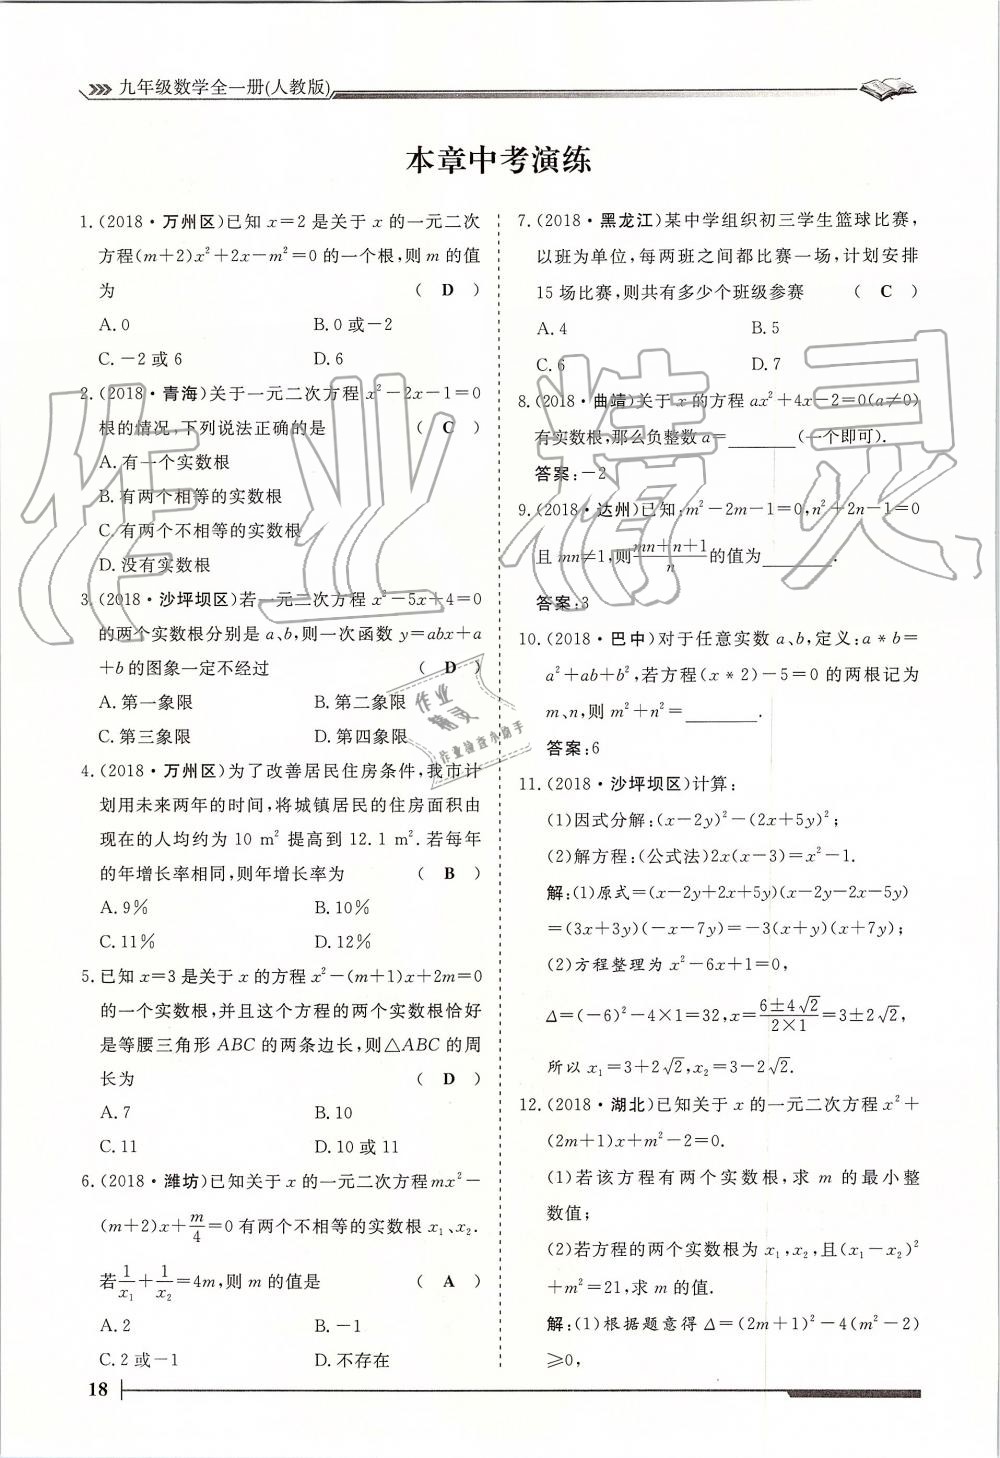 九年级数学全一册(人教版)
本章中考演练
1.(2018·万州区)已知 x=2 是关于 x 的一元二次
方程(m+2)x²+2x-m²=0 的一个根,则 m 的值
为 ( D )
A. 0 B. 0 或-2
C. -2 或 6 D. 6
2.(2018·青海)关于一元二次方程 x²-2x-1=0
根的情况,下列说法正确的是 ( C )
A. 有一个实数根
B. 有两个相等的实数根
C. 有两个不相等的实数根
D. 没有实数根
3.(2018·沙坪坝区)若一元二次方程 x²-5x+4=0
的两个实数根分别是 a、b,则一次函数 y=abx+a
+b 的图象一定不经过 ( D )
A. 第一象限 B. 第二象限
C. 第三象限 D. 第四象限
4.(2018·万州区)为了改善居民住房条件,我市计
划用未来两年的时间,将城镇居民的住房面积由
现在的人均约为 10 m² 提高到 12.1 m². 若每年
的年增长率相同,则年增长率为 ( B )
A. 9% B. 10%
C. 11% D. 12%
5. 已知 x=3 是关于 x 的方程 x²-(m+1)x+2m=0
的一个实数根,并且这个方程的两个实数根恰好
是等腰三角形 ABC 的两条边长,则△ABC 的周
长为 ( D )
A. 7 B. 10
C. 11 D. 10 或 11
6.(2018·潍坊)已知关于 x 的一元二次方程 mx²-
(m+2)x+m/4=0 有两个不相等的实数根 x₁、x₂.
若1/x₁+1/x₂=4m,则 m 的值是 ( A )
A. 2 B. -1
C. 2 或-1 D. 不存在
18
7.(2018·黑龙江)某中学组织初三学生篮球比赛,
以班为单位,每两班之间都比赛一场,计划安排
15 场比赛,则共有多少个班级参赛 ( C )
A. 4 B. 5
C. 6 D. 7
8.(2018·曲靖)关于 x 的方程 ax²+4x-2=0(a≠0)
有实数根,那么负整数 a=________(一个即可).
答案:-2
9.(2018·达州)已知:m²-2m-1=0,n²+2n-1=0
且 mn≠1,则(mn+n+1)/n的值为________.
答案:3
10.(2018·巴中)对于任意实数 a、b,定义:a*b=
a²+ab+b²,若方程(x*2)-5=0 的两根记为
m、n,则 m²+n²=________.
答案:6
11.(2018·沙坪坝区)计算:
(1)因式分解:(x-2y)²-(2x+5y)²;
(2)解方程:(公式法)2x(x-3)=x²-1.
解:(1)原式=(x-2y+2x+5y)(x-2y-2x-5y)
=(3x+3y)(-x-7y)=-3(x+y)(x+7y);
(2)方程整理为 x²-6x+1=0,
Δ=(-6)²-4×1=32,x=(6±4√2)/(2×1)=3±2√2,
所以 x₁=3+2√2,x₂=3-2√2.
12.(2018·湖北)已知关于 x 的一元二次方程 x²+
(2m+1)x+m²-2=0.
(1)若该方程有两个实数根,求 m 的最小整
数值;
(2)若方程的两个实数根为 x₁,x₂,且(x₁-x₂)²
+m²=21,求 m 的值.
解:(1)根据题意得 Δ=(2m+1)²-4(m²-2)
≥0,
作业精灵
作业
精灵
作业检查小助手